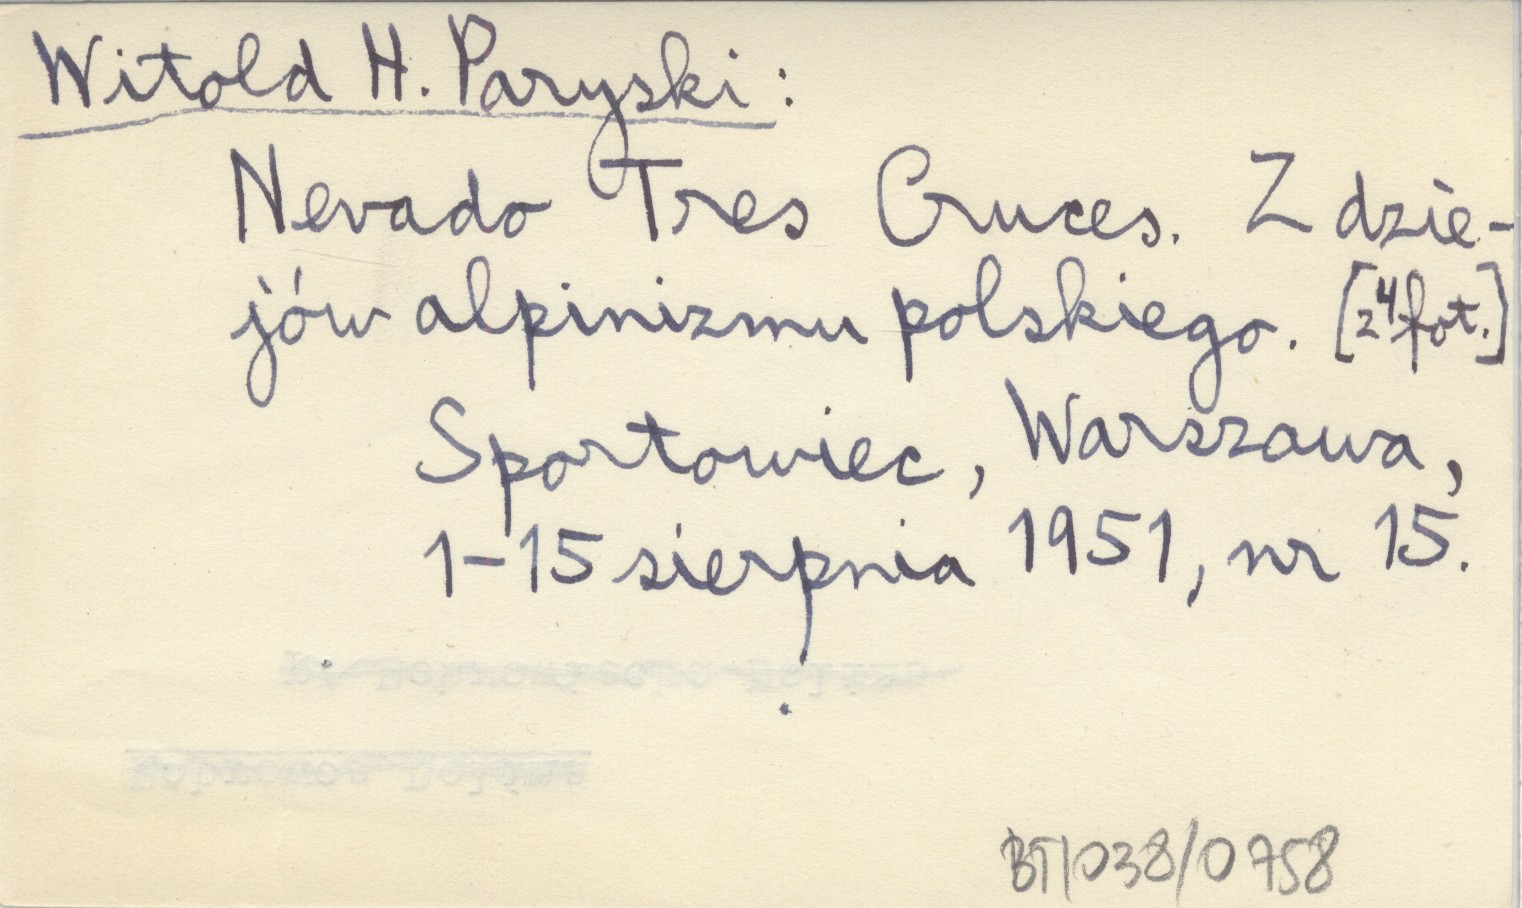 Witold H. Paryski:
Nevado Tres Cruces. Z dzie-
jów alpinizmu polskiego. [z 4 fot.]
Sportowiec, Warszawa,
1-15 sierpnia 1951, nr 15.
BT/038/0758